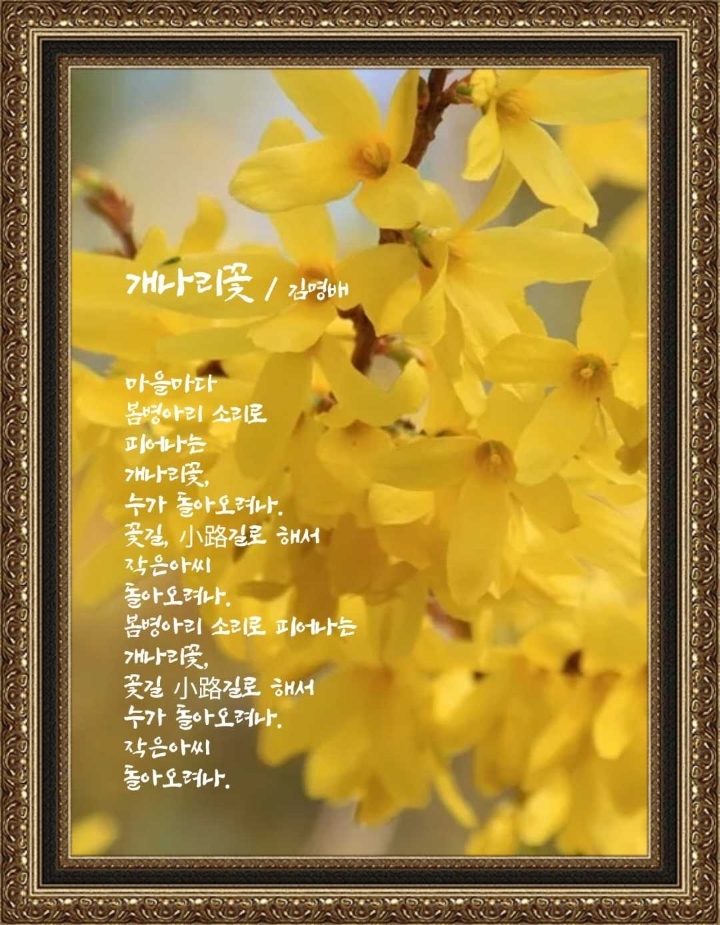 개나리꽃 / 김명배
마을마다
봄병아리 소리로
피어나는
개나리꽃,
누가 돌아오려나.
꽃길, 小路길로 해서
작은아씨
돌아오려나.
봄병아리 소리로 피어나는
개나리꽃,
꽃길 小路길로 해서
누가 돌아오려나.
작은아씨
돌아오려나.